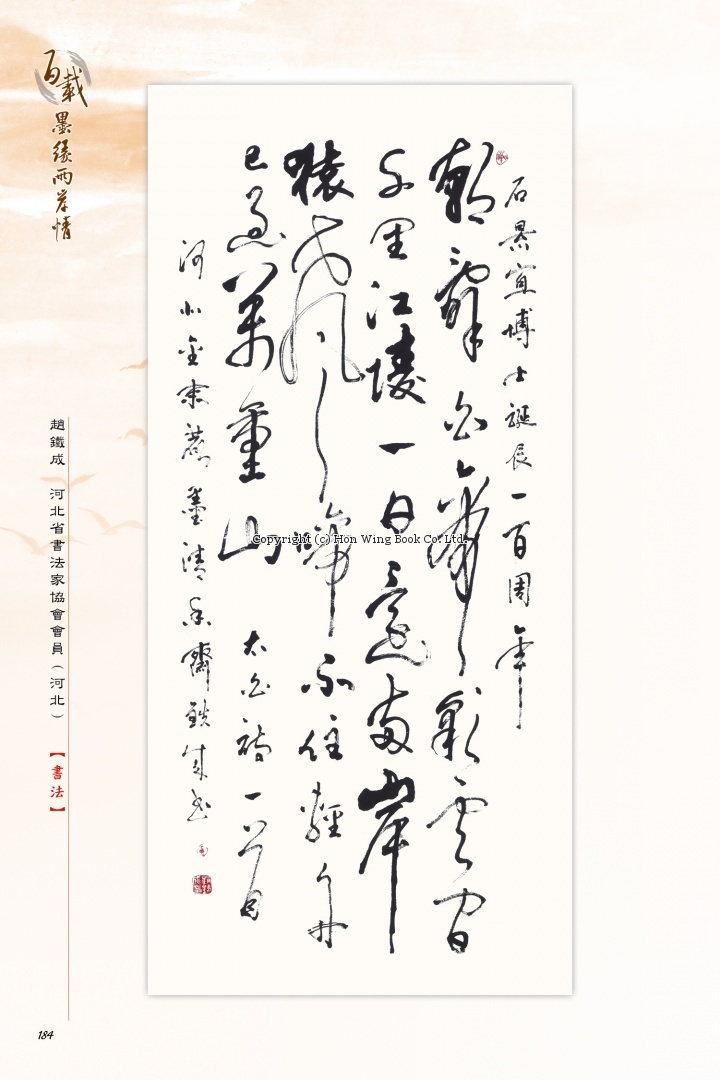 百載
墨緣兩岸情
石景宜博士誕辰一百周年
朝辭白帝彩雲間
千里江陵一日還兩岸
猿聲啼不住輕舟
已過萬重山
太白詩一首
趙鐵成　河北省書法家協會會員（河北）
【書法】
Copyright (c) Hon Wing Book Co. Ltd.
184